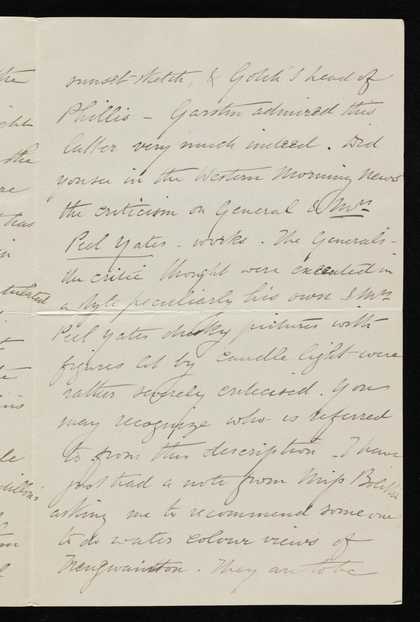 the
ight
the
are
t has
in
sunset sketch, & Gotch's head of
Phillis – Garstin admired this
latter very much indeed. Did
you see in the Western Morning News
the criticism on General & Mrs
Peel Yates – works. The Generals –
the critic thought were executed in
a style peculiarly his own & Mrs
Peel Yates dusky pictures with
figures lit by candle light were
rather severely criticised. You
may recognize who is referred
to from this description – I have
just had a note from Miss
asking me to recommend some one
to do water colour views of
Trengwainton. They are to be